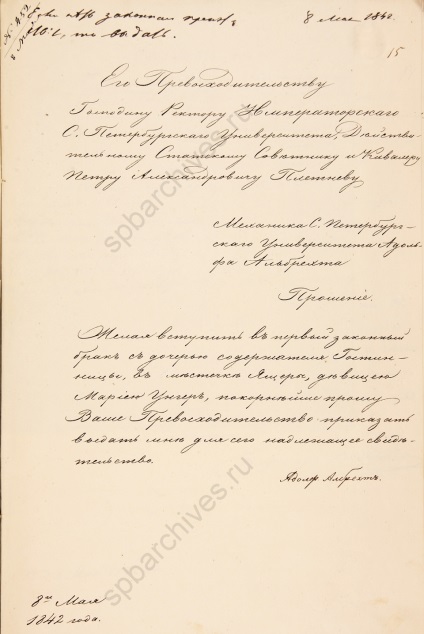 8 Мая 1842.
15
Его Превосходительству
Господину Ректору Императорскаго
С. Петербургскаго Университета, Действи-
тельному Статскому Советнику и Кавалеру
Петру Александровичу Плетневу
Механика С. Петербург-
скаго Университета Адоль-
фа Альбрехта
Прошение.
Желая вступить въ первый законный
бракъ съ дочерью содержателя Гостин-
ницы, въ местечкѣ Ящеры, дѣвицею
Маріею Унгеръ, покорнѣйше прошу
Ваше Превосходительство приказать
выдать мнѣ для сего надлежащее свидѣ-
тельство.
Адолф Албрехтъ
8го Мая
1842 года.
spbarchives.ru
spbarchives.ru